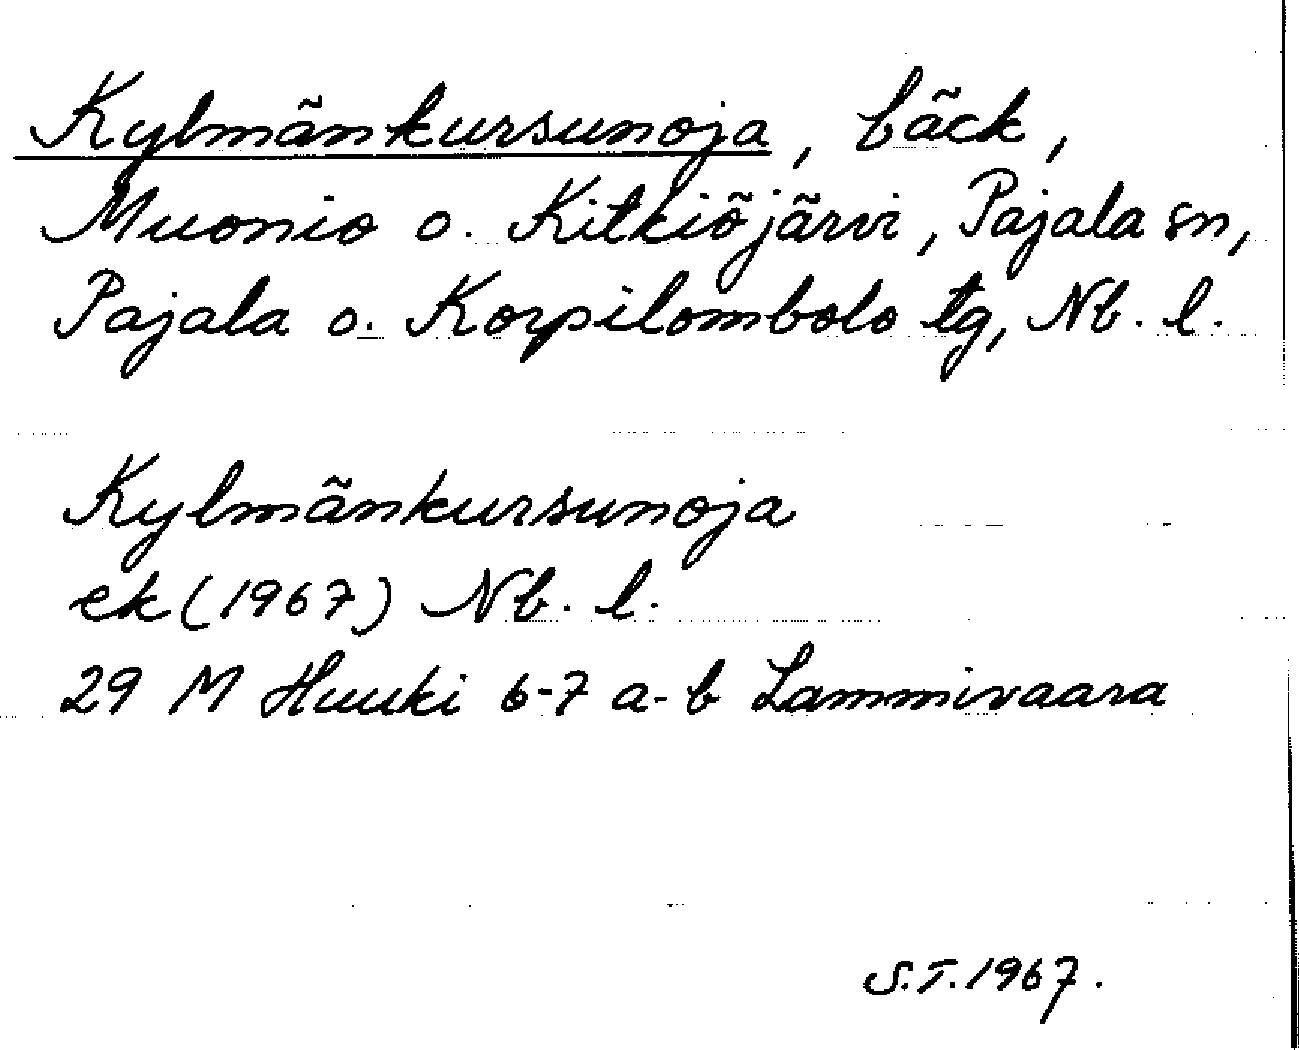 Kylmänkursunoja, bäck,
Muonio o. Kitkiöjärvi, Pajala sn,
Pajala o. Korpilombolo tg, Nb. l.
Kylmänkursunoja
ek (1967) Nb. l.
29 M Huuki 6-7 a-b Lammivaara
S.T. 1967.